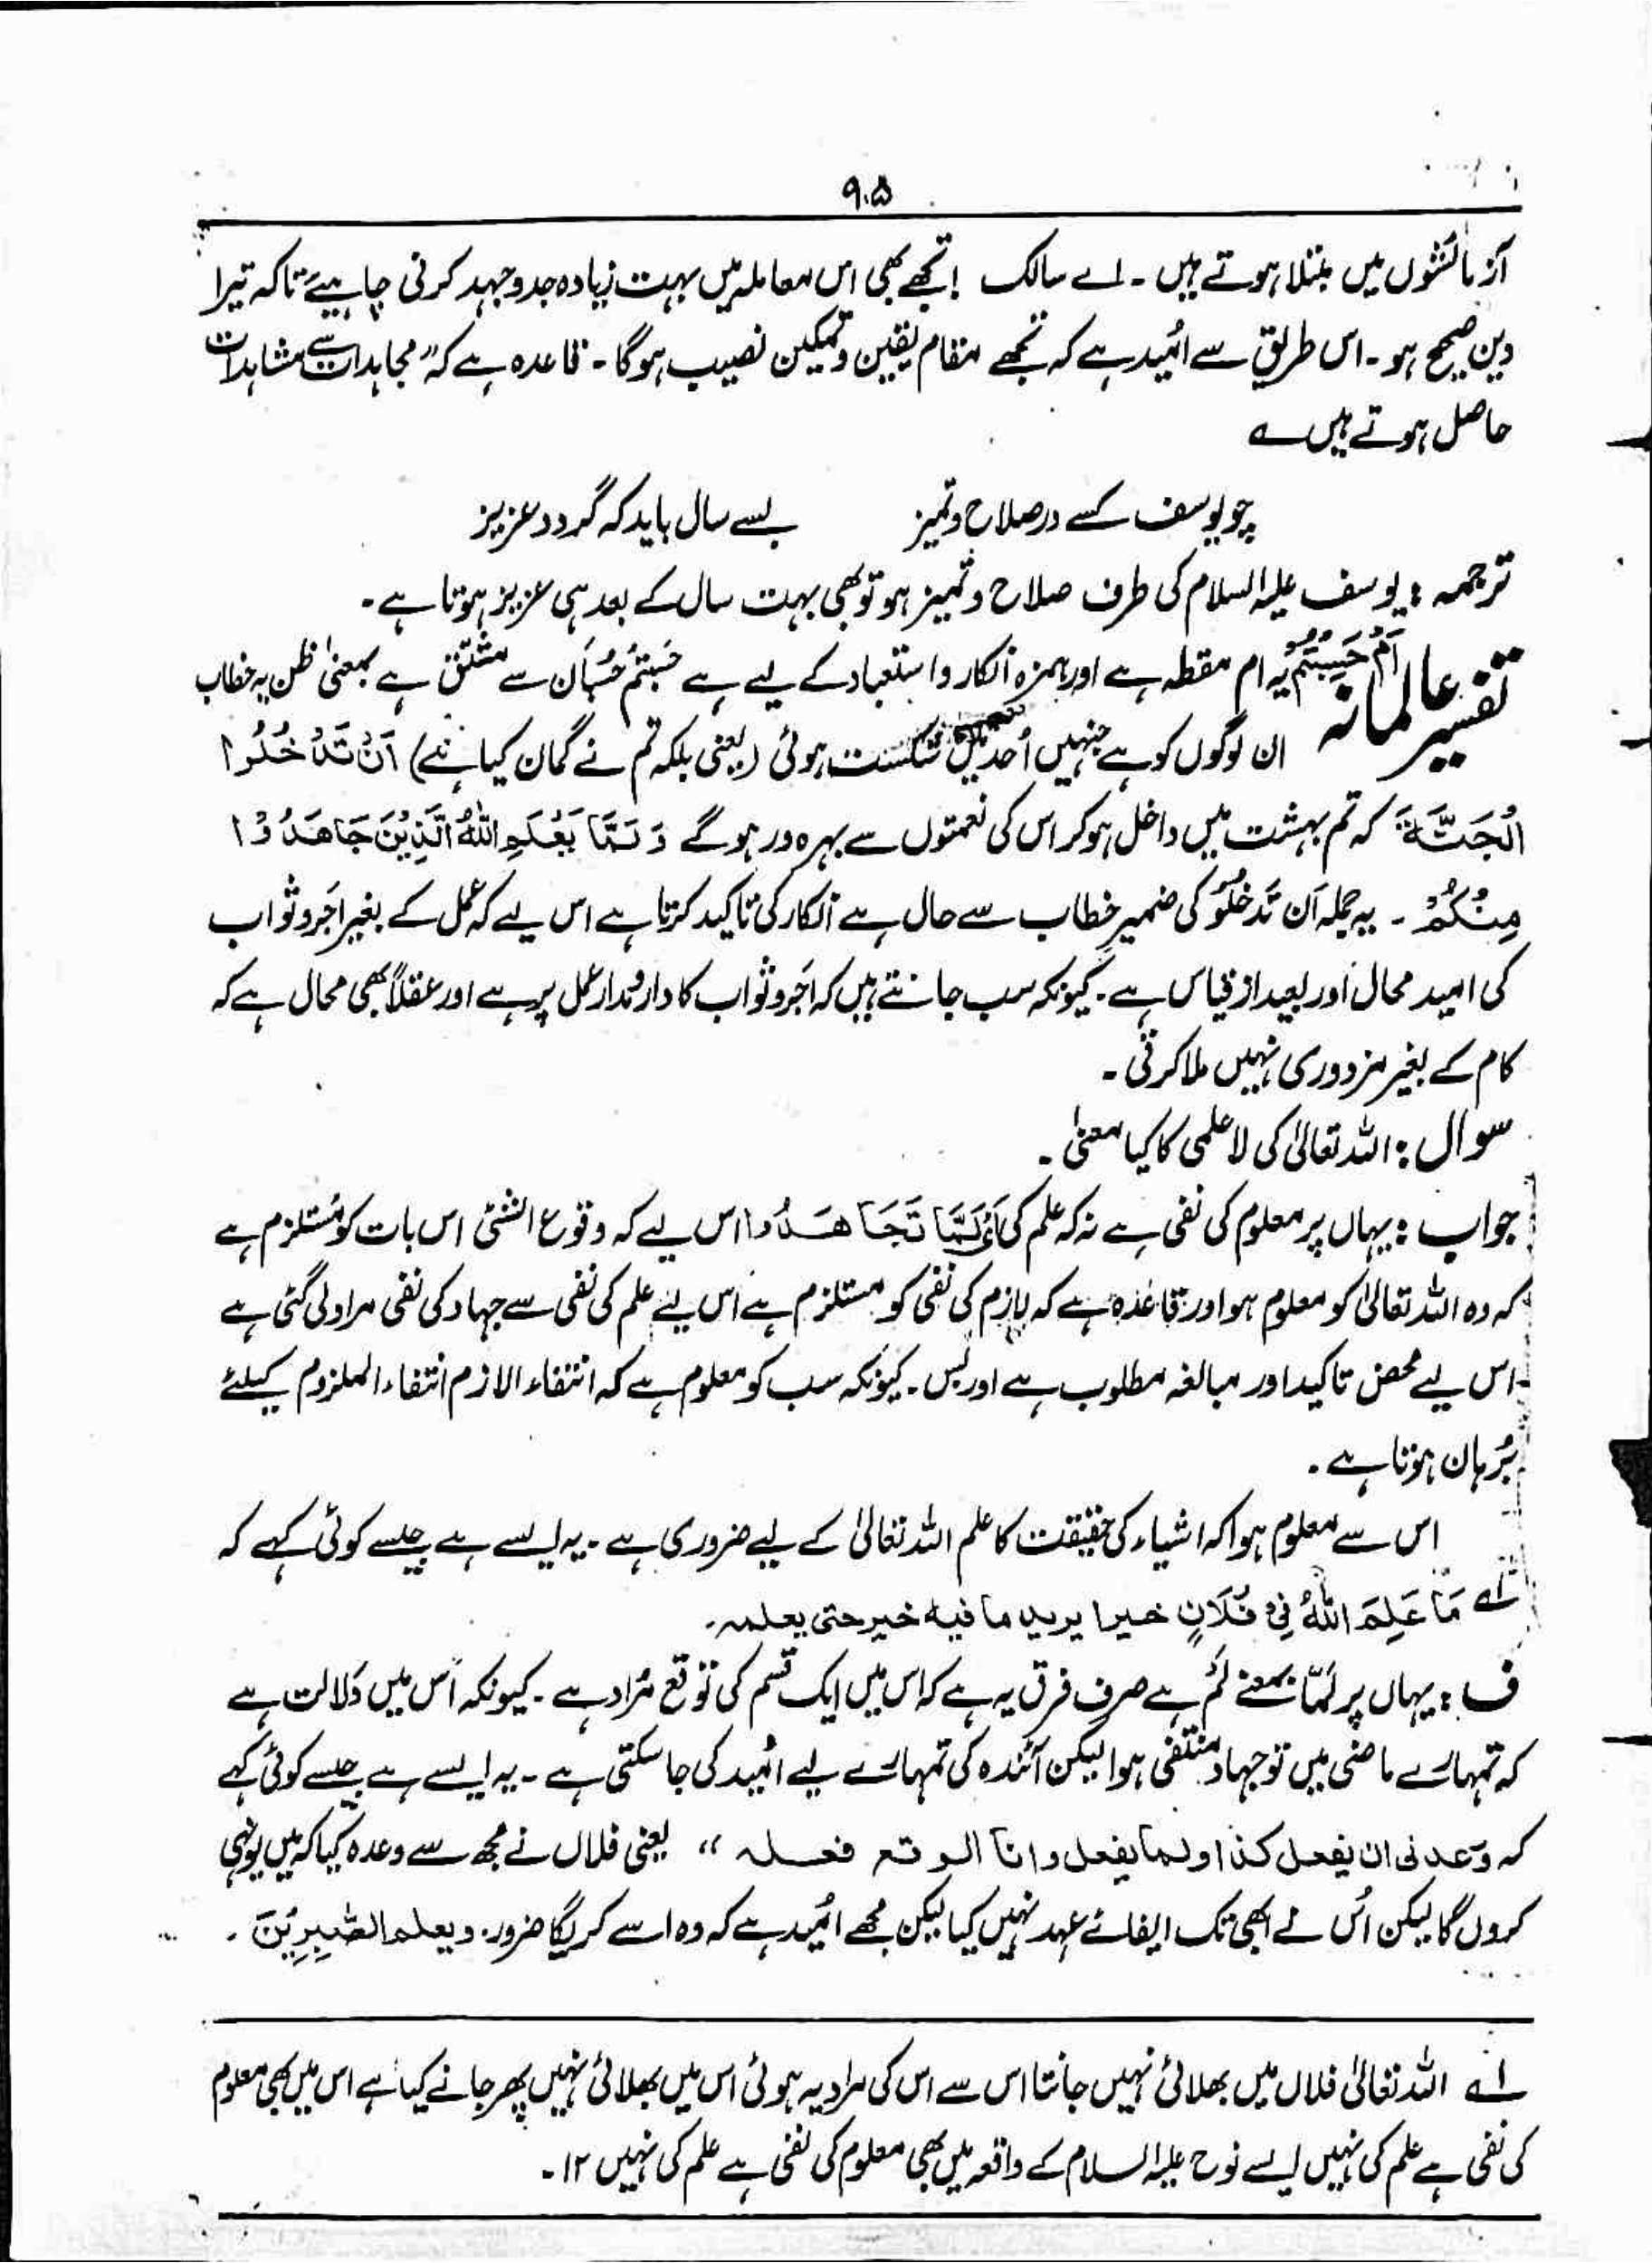 ۹۰۵
آزمائشوں میں مبتلا ہوتے ہیں ۔ اے سالک ! تجھے بھی اس معاملہ میں بہت زیادہ جدوجہد کرنی چاہیئے تاکہ تیرا
دین صحیح ہو ۔ اس طریق سے اُمید ہے کہ تجھے مقام یقین و تمکین نصیب ہوگا ۔ قاعدہ ہے کہ " مجاہدات سے مشاہدات
حاصل ہوتے ہیں ؎
چو یوسف کسے در صلاح و تمیز بسے سال باید کہ گردد عزیز
ترجمہ : یوسف علیہ السلام کی طرف صلاح و تمیز ہو تو بھی بہت سال کے بعد ہی عزیز ہوتا ہے ۔
تفسیر عالمانہ اَمْ حَسِبْتُمْ یہ ام مقطہ ہے اور ہمزہ انکار و استبعاد کے لیے ہے حَسِبْتُمْ حُسْبَان سے مشتق ہے بمعنیٰ ظن یہ خطاب
ان لوگوں کو ہے جنہیں اُحد میں شکست ہوئی (یعنی بلکہ تم نے گمان کیا ہے) اَنْ تَدْخُلُوا
الْجَنَّةَ کہ تم بہشت میں داخل ہو کر اس کی نعمتوں سے بہرہ ور ہو گے وَ لَمَّا يَعْلَمِ اللّٰهُ الَّذِيْنَ جَاهَدُوْا
مِنْكُمْ ۔ یہ جملہ اَن تَدخُلُوْ کی ضمیر خطاب سے حال ہے انکار کی تاکید کرتا ہے اس لیے کہ عمل کے بغیر اَجر و ثواب
کی امید محال اور بعید از قیاس ہے ۔ کیونکہ سب جانتے ہیں کہ اَجر و ثواب کا دار و مدار عمل پر ہے اور عقلاً بھی محال ہے کہ
کام کے بغیر مزدوری نہیں ملا کرتی ۔
سوال : اللہ تعالیٰ کی لاعلمی کا کیا معنیٰ ۔
جواب : یہاں پر معلوم کی نفی ہے نہ کہ علم کی اَیْ لَمَّا تَجَاهَدُوا اس لیے کہ وقوع الشئی اس بات کو مُستلزم ہے
کہ وہ اللہ تعالیٰ کو معلوم ہو اور قاعدہ ہے کہ لازم کی نفی کو مستلزم ہے اس لیے علم کی نفی سے جہاد کی نفی مراد لی گئی ہے
اس لیے محض تاکید اور مبالغہ مطلوب ہے اور بس ۔ کیونکہ سب کو معلوم ہے کہ انتفاء الازم انتفاء الملزوم کیلئے
بُرہان ہوتا ہے ۔
اس سے معلوم ہوا کہ اشیاء کی حقیقت کا علم اللہ تعالیٰ کے لیے ضروری ہے ۔ یہ ایسے ہے جیسے کوئی کہے کہ
لے مَا عَلِمَ اللّٰهُ فِیْ فُلَانٍ خیرا یرید ما فیه خیر حتی یعلمه ۔
ف : یہاں پر لَمَّا بمعنے لَمْ ہے صرف فرق یہ ہے کہ اس میں ایک قسم کی توقع مُراد ہے ۔ کیونکہ اس میں دلالت ہے
کہ تمہارے ماضی میں تو جہاد منتفی ہوا لیکن آئندہ کی تمہارے لیے اُمید کی جا سکتی ہے ۔ یہ ایسے ہے جیسے کوئی کہے
کہ وعدنی ان یفعل کذا ولما یفعل وانا الوقع فعله " یعنی فلاں نے مجھ سے وعدہ کیا کہ میں یونہی
کروں گا لیکن اُس نے ابھی تک ایفائے عہد نہیں کیا لیکن مجھے اُمید ہے کہ وہ اسے کریگا ضرور ۔ ویعلم الصّٰبِرِیْنَ ۔
لے اللہ تعالیٰ فلاں میں بھلائی نہیں جانتا اس سے اس کی مراد یہ ہوئی اس میں بھلائی نہیں پھر جانے کیا ہے اس میں بھی معلوم
کی نفی ہے علم کی نہیں ایسے نوح علیہ السلام کے واقعہ میں بھی معلوم کی نفی ہے علم کی نہیں ۱۲ ۔